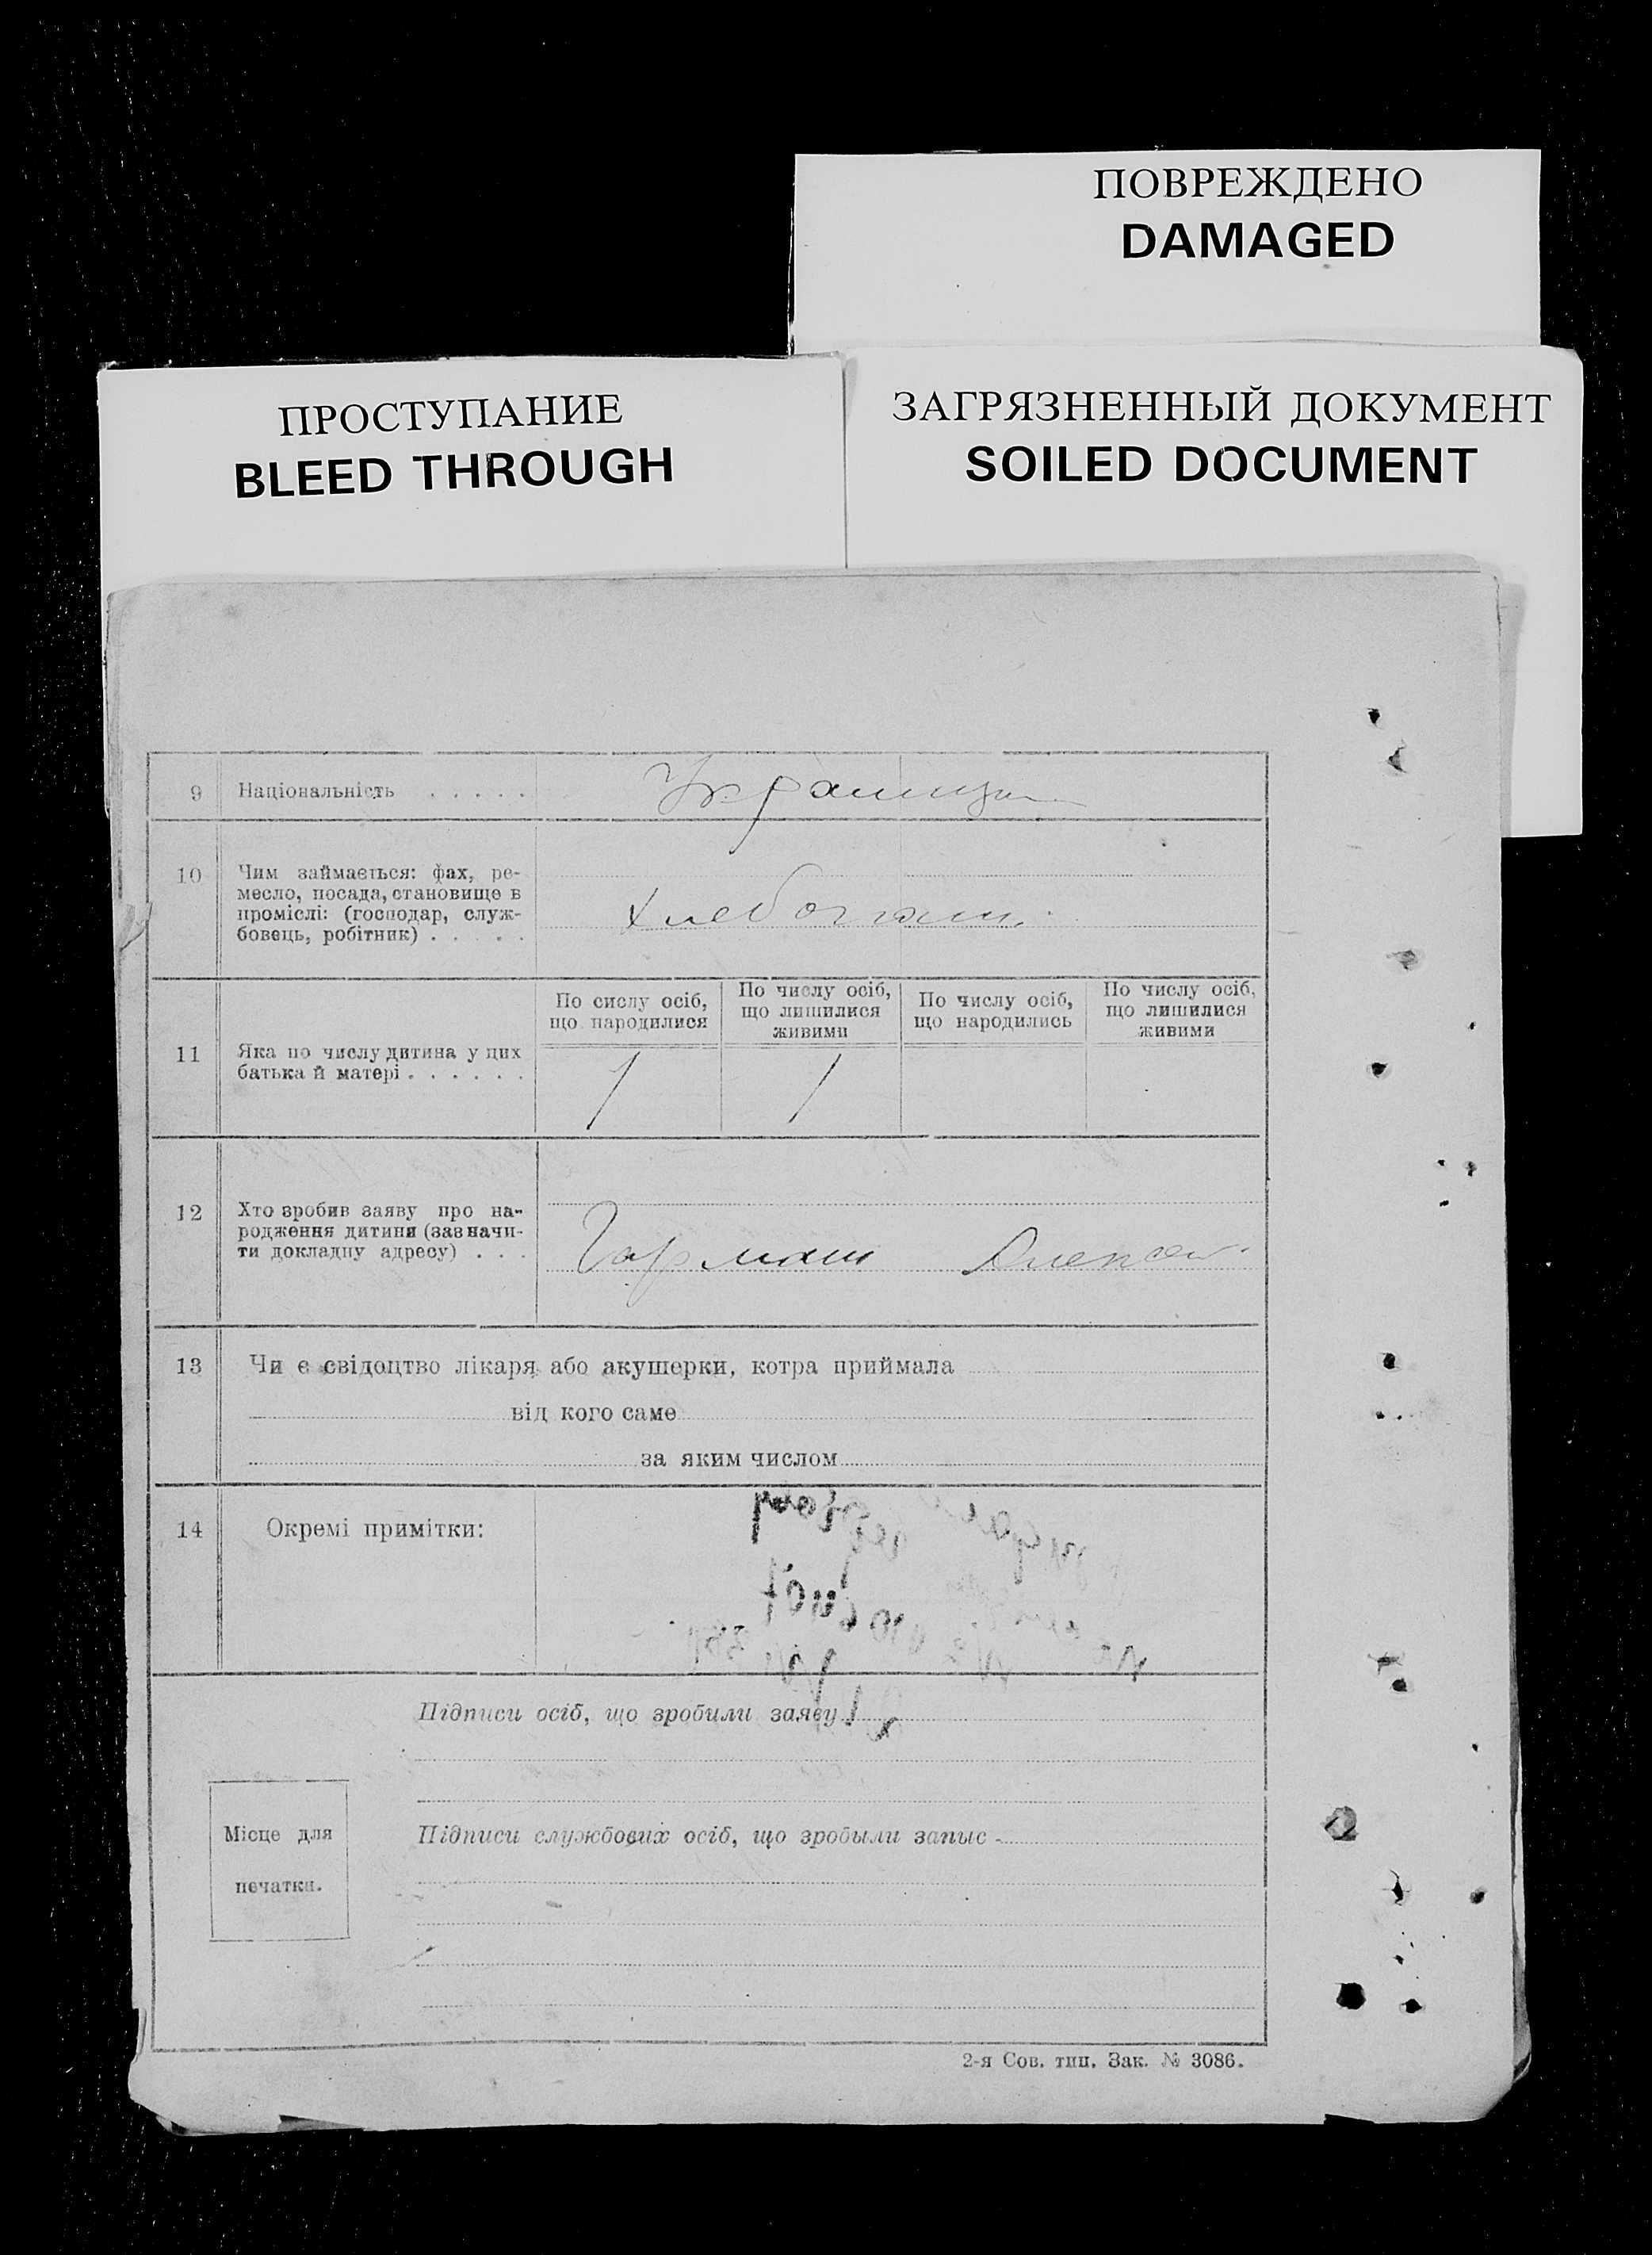 ПОВРЕЖДЕНО
DAMAGED
ПРОСТУПАНИЕ
BLEED THROUGH
ЗАГРЯЗНЕННЫЙ ДОКУМЕНТ
SOILED DOCUMENT
9 Національність . . . . .
10 Чим займається: фах, ре-
месло, посада, становище в
проміслі: (господар, служ-
бовець, робітник) . . . . .
По сислу осіб,
що народилися
По числу осіб,
що лишилися
живими
По числу осіб,
що народились
По числу осіб,
що лишилися
живими
11 Яка по числу дитина у цих
батька й матері . . . . . .
1 1
12 Хто зробив заяву про на-
родження дитини (зазначи-
ти докладну адресу) . . .
Гармаш Алексей
13 Чи є свідоцтво лікаря або акушерки, котра приймала
від кого саме
за яким числом
14 Окремі примітки:
Підписи осіб, що зробили заяву
Місце для
печатки.
Підписи службових осіб, що зробыли запыс -
2-я Сов. тип. Зак. № 3086.